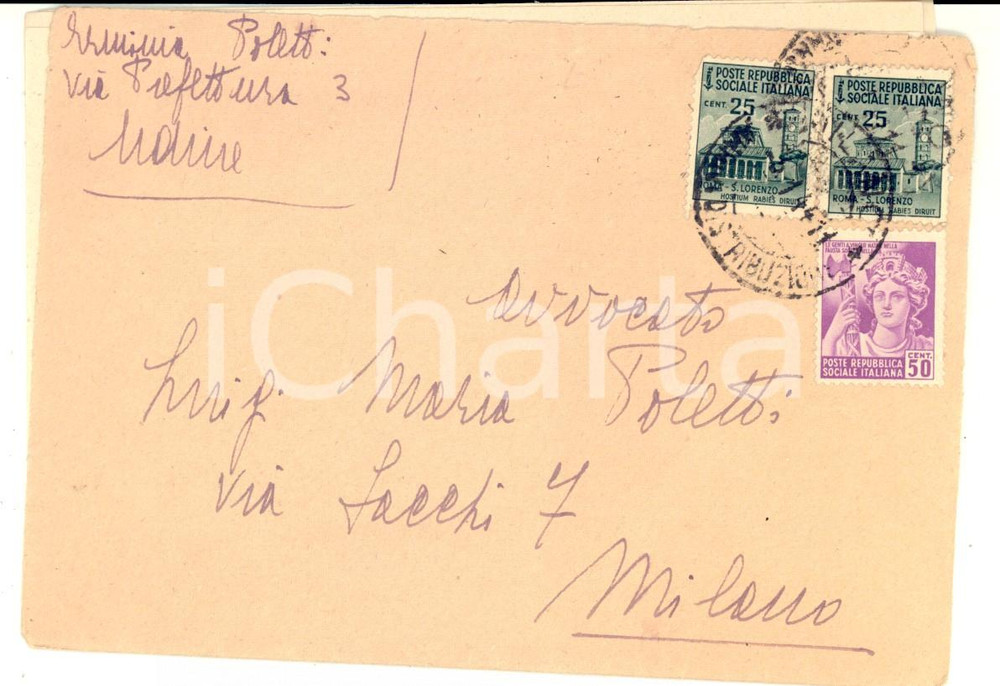 Erminia Poletti
Via Prefettura 3
POSTE REPUBBLICA
SOCIALE ITALIANA
CENT. 25
ROMA - S. LORENZO
HOSTIUM RABIES DIRUIT
POSTE REPUBBLICA
SOCIALE ITALIANA
CENT. 25
ROMA - S. LORENZO
HOSTIUM RABIES DIRUIT
DISTRIBUZIONE
POSTE REPUBBLICA
SOCIALE ITALIANA
CENT.
50
avvocato
Luigi Maria Poletti
Via Sacchi 7
Milano
iCharta